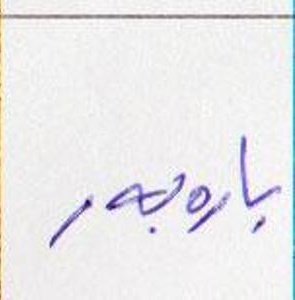 باروبهر